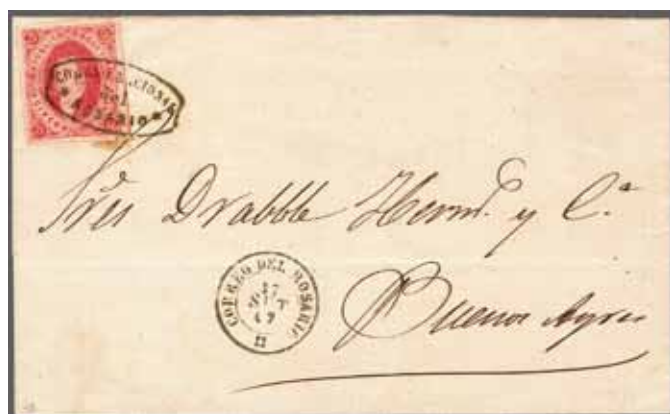 CORREO NACIONAL
del
ROSARIO
Sres Drabble Herms. y C.a
CORREO DEL ROSARIO
17
Buenos Ayres